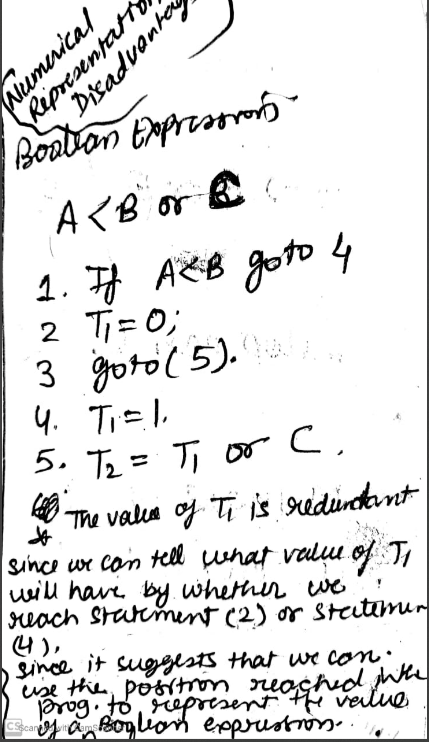 Numerical
Representation
Disadvantage
Boolean Expressions
A < B or C
1. If A<B goto 4
2 T1 = 0;
3 goto (5).
4. T1 = 1.
5. T2 = T1 or C.
The value of T1 is redundant
since we can tell what value of T1
will have by whether we
reach statement (2) or statemen
(4).
since it suggests that we can.
use the position reached in the
prog. to represent the value
of a Boolean expression.
CS Scanned with CamS